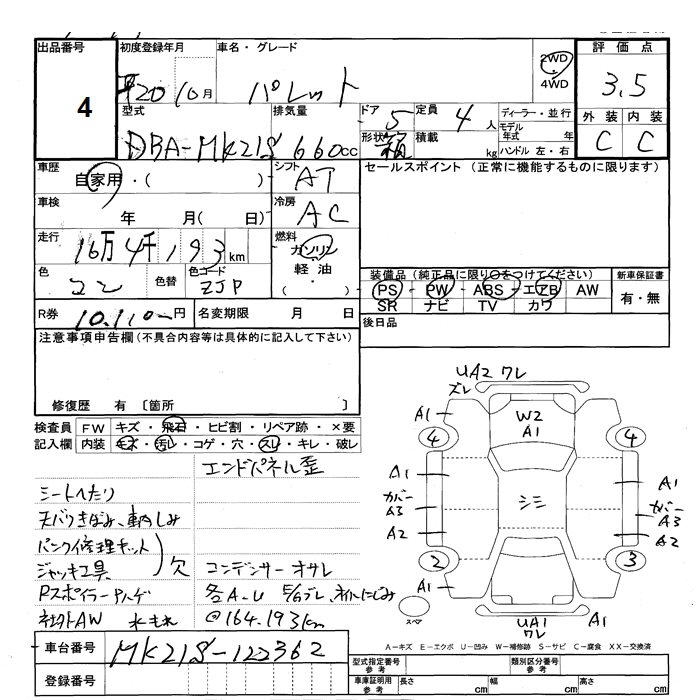 出品番号
4
初度登録年月
平20 10月
車名・グレード
パレット
2WD
4WD
評価点
3.5
外装 内装
C C
型式
DBA-MK21S
排気量
660cc
ドア
5
定員
4人
形状
箱
積載
kg
ディーラー・並行
モデル年式 年
ハンドル 左・右
車歴
自家用・( )
シフト
AT
セールスポイント (正常に機能するものに限ります)
車検
年 月( 日)
冷房
AC
走行
16万4千193km
燃料
ガソリン
軽油
( ・ )
色
コン
色替
色コード
ZJP
装備品 (純正品に限り○をつけてください)
PS PW ABS エアB AW
SR ナビ TV カワ
新車保証書
有・無
R券
10,110-円
名変期限 月 日
後日品
注意事項申告欄(不具合内容等は具体的に記入して下さい)
修復歴 有 〔箇所 〕
検査員記入欄
FW キズ・飛石・ヒビ割・リペア跡・×要
内装 キズ・汚レ・コゲ・穴・スレ・キレ・破レ
エンドパネル歪
シートへたり
天バリきばみ、車内しみ
パンク修理キット
ジャッキ工具
欠
コンデンサー オサレ
Rスポイラー
各A-U
社外AW 水もれ
@164,193km
車台番号
MK21S-122362
登録番号
UA2 ワレ
ズレ
A1
W2
A1
4
4
A1
A1
カバー
A3
シミ
カバー
A3
A2
A2
2
3
A1
スペア
UA1
ワレ
A1
A-キズ E-エクボ U-凹み W-補修跡 S-サビ C-腐食 XX-交換済
型式指定番号
参考
類別区分番号
参考
車庫証明用
参考
長さ cm
幅 cm
高さ cm